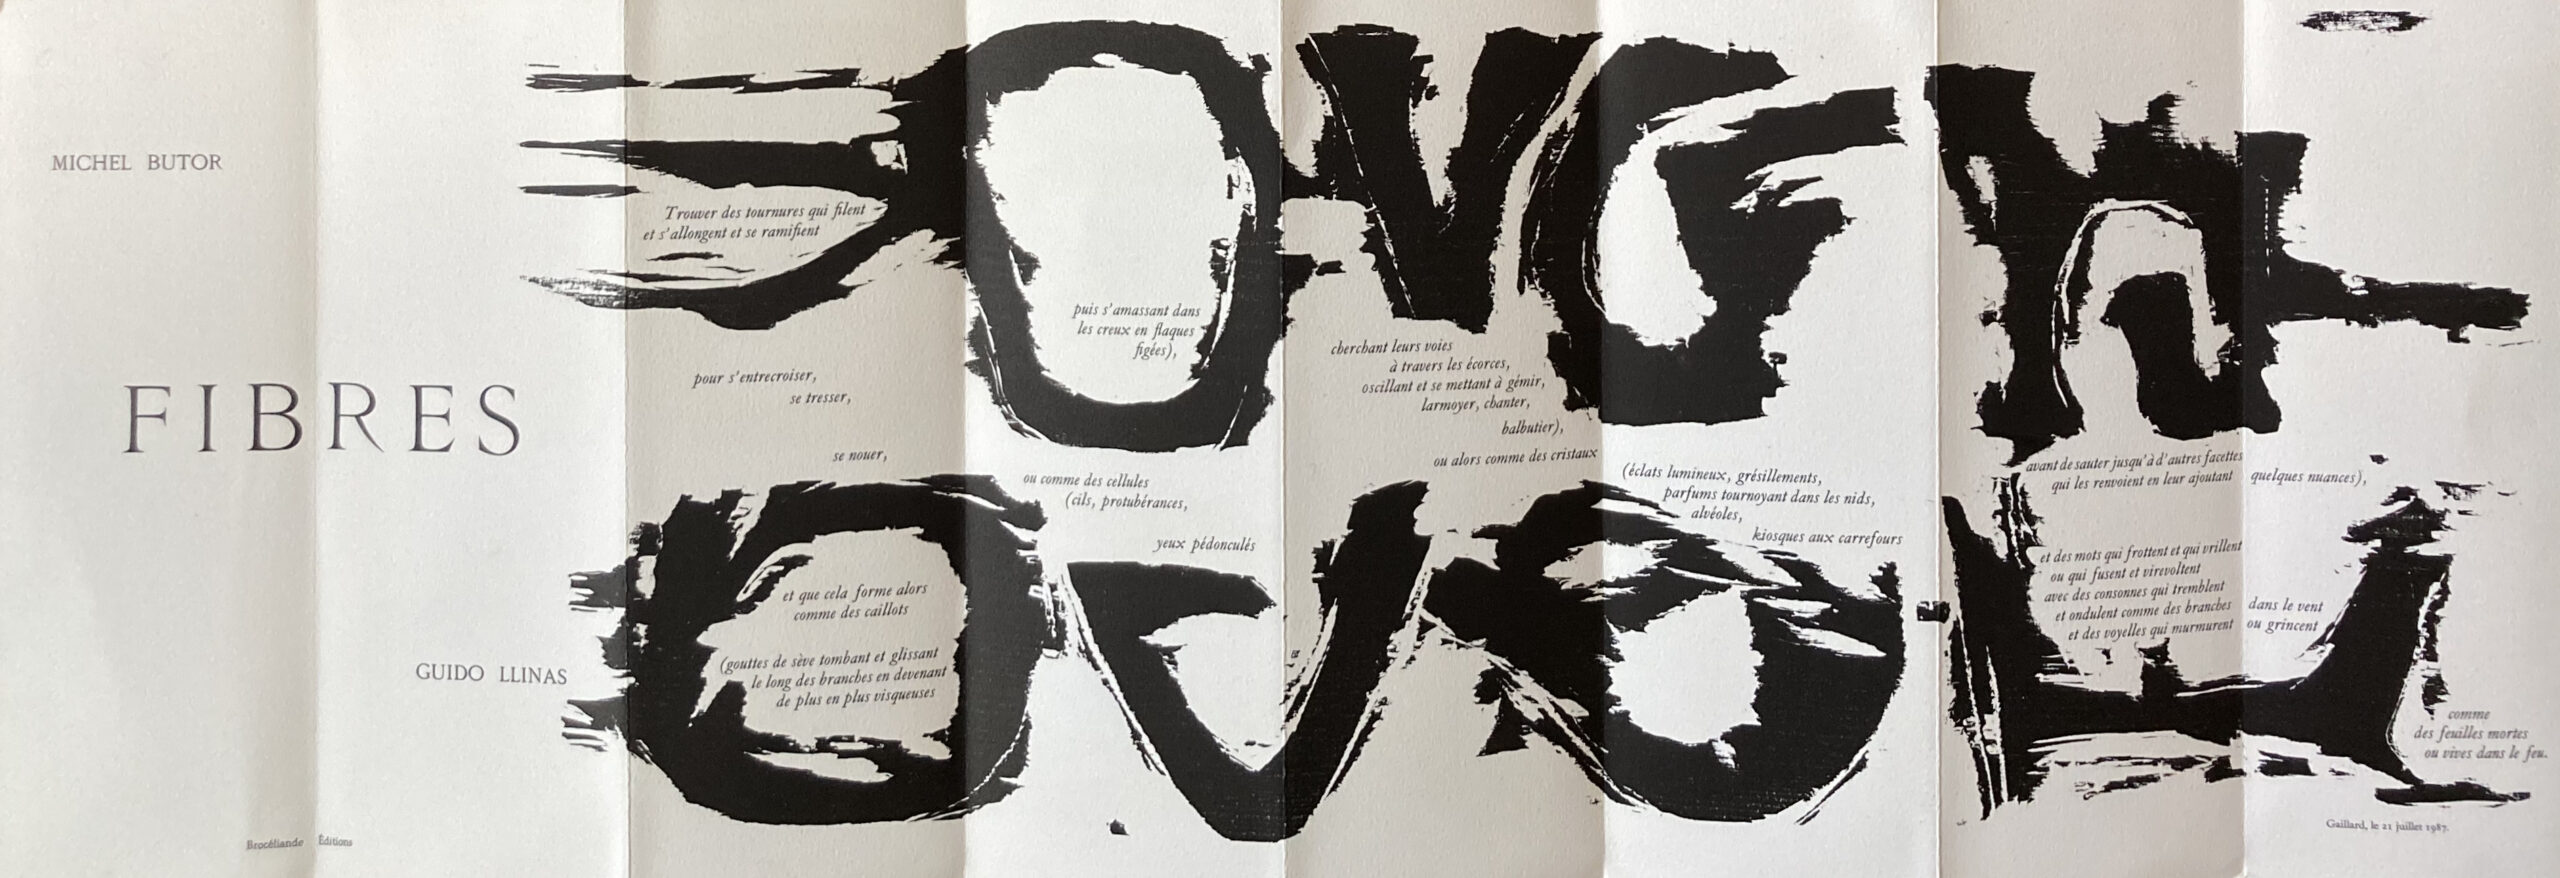 MICHEL BUTOR
FIBRES
GUIDO LLINAS
Brocéliande Éditions
Trouver des tournures qui filent
et s'allongent et se ramifient
pour s'entrecroiser,
se tresser,
se nouer,
et que cela forme alors
comme des caillots
(gouttes de sève tombant et glissant
le long des branches en devenant
de plus en plus visqueuses
puis s'amassant dans
les creux en flaques
figées),
ou comme des cellules
(cils, protubérances,
yeux pédonculés
cherchant leurs voies
à travers les écorces,
oscillant et se mettant à gémir,
larmoyer, chanter,
balbutier),
ou alors comme des cristaux
(éclats lumineux, grésillements,
parfums tournoyant dans les nids,
alvéoles,
kiosques aux carrefours
avant de sauter jusqu'à d'autres facettes
qui les renvoient en leur ajoutant quelques nuances),
et des mots qui frottent et qui vrillent
ou qui fusent et virevoltent
avec des consonnes qui tremblent
et ondulent comme des branches dans le vent
et des voyelles qui murmurent ou grincent
comme
des feuilles mortes
ou vives dans le feu.
Gaillard, le 21 juillet 1987.